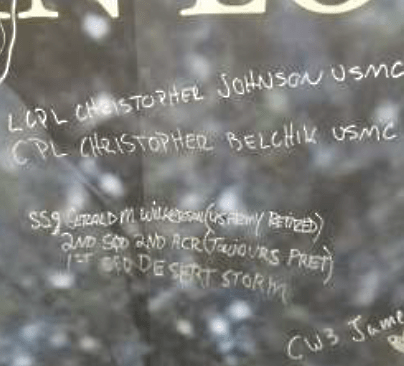 IN LO
LCPL CHRISTOPHER JOHNSON USMC
CPL CHRISTOPHER BELCHIK USMC
SSg GERALD M WILKERSON (US ARMY RETIRED)
2ND SQD 2ND ACR (TOUJOURS PRET)
1ST DESERT STORM
CW3 Jame